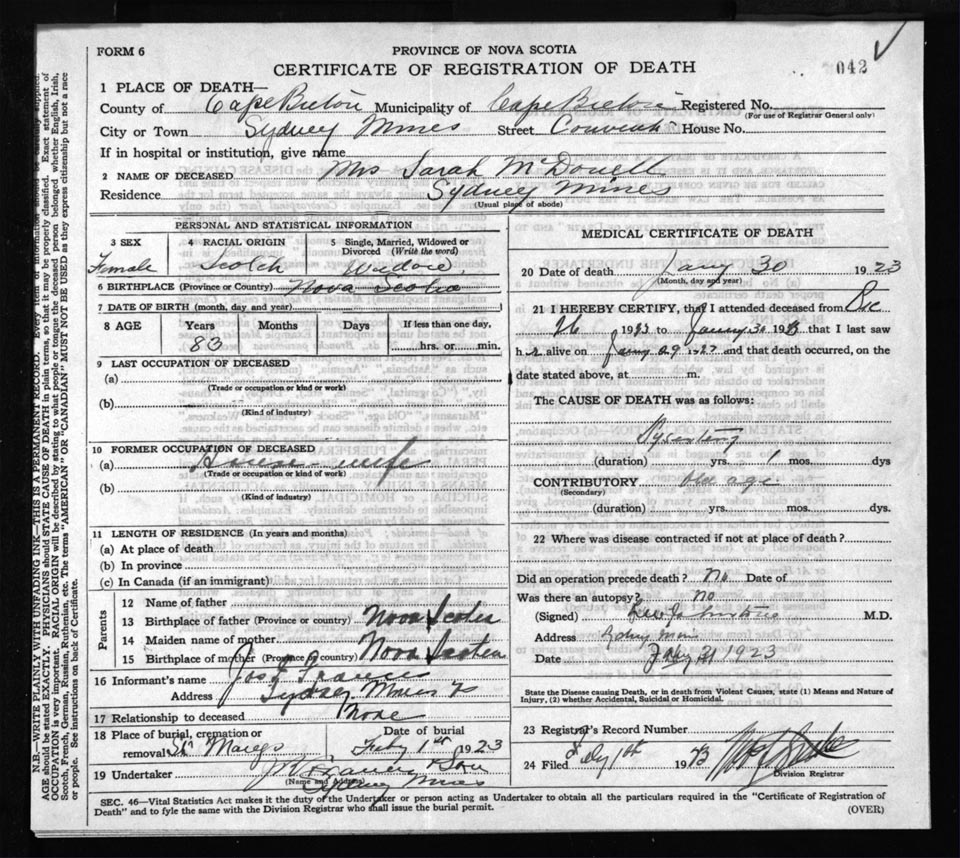 FORM 6
PROVINCE OF NOVA SCOTIA
CERTIFICATE OF REGISTRATION OF DEATH
042
1 PLACE OF DEATH—
County of Cape Breton Municipality of Cape Breton Registered No.
(For use of Registrar General only)
City or Town Sydney Mines Street Convent House No.
If in hospital or institution, give name
2 NAME OF DECEASED Mrs Sarah McDonell
Residence Sydney Mines
(Usual place of abode)
PERSONAL AND STATISTICAL INFORMATION
3 SEX
Female
4 RACIAL ORIGIN
Scotch
5 Single, Married, Widowed or Divorced (Write the word)
Widow
6 BIRTHPLACE (Province or Country) Nova Scotia
7 DATE OF BIRTH (month, day, and year)
8 AGE Years Months Days If less than one day,
83 hrs. or min.
9 LAST OCCUPATION OF DECEASED
(a)
(Trade or occupation or kind or work)
(b)
(Kind of industry)
10 FORMER OCCUPATION OF DECEASED
(a) House wife
(Trade or occupation or kind of work)
(b)
(Kind of industry)
11 LENGTH OF RESIDENCE (In years and months)
(a) At place of death
(b) In province
(c) In Canada (if an immigrant)
Parents
12 Name of father
13 Birthplace of father (Province or country) Nova Scotia
14 Maiden name of mother
15 Birthplace of mother (Province or country) Nova Scotia
16 Informant's name Jos
Address Sydney Mines
17 Relationship to deceased None
18 Place of burial, cremation or removal St Marys
Date of burial
Feby 1st 1923
19 Undertaker & Son
(Name and Address) Sydney Mines
MEDICAL CERTIFICATE OF DEATH
20 Date of death Jany 30 1923
(Month, day and year)
21 I HEREBY CERTIFY, that I attended deceased from Dec
26 19 to Jany 30 1923 that I last saw
her alive on Jany 29 and that death occurred, on the
date stated above, at m.
The CAUSE OF DEATH was as follows:
Dysentery
(duration) yrs. 1 mos. dys
CONTRIBUTORY Old age
(Secondary)
(duration) yrs. mos. dys
22 Where was disease contracted if not at place of death?
Did an operation precede death? No Date of
Was there an autopsy? no
(Signed) M.D.
Address Sydney Mines
Date 1923
State the Disease causing Death, or in death from Violent Causes, state (1) Means and Nature of
Injury, (2) whether Accidental, Suicidal or Homicidal.
23 Registrar's Record Number
24 Filed Feby 1st 1923
Division Registrar
SEC. 46—Vital Statistics Act makes it the duty of the Undertaker or person acting as Undertaker to obtain all the particulars required in the "Certificate of Registration of
Death" and to fyle the same with the Division Registrar who shall issue the burial permit.
(OVER)
N.B.—WRITE PLAINLY WITH UNFADING INK—THIS IS A PERMANENT RECORD. Every item of information should be carefully supplied.
AGE should be stated EXACTLY. PHYSICIANS should STATE CAUSE OF DEATH in plain terms, so that it may be properly classified. Exact statement of
OCCUPATION is very important. RACIAL ORIGIN will be described by stating to what people or tongue the deceased person belonged, whether English, Irish,
Scotch, French, German, Russian, Ruthenian, etc. The terms "AMERICAN" or "CANADIAN" MUST NOT BE USED as they express citizenship but not a race
or people. See instructions on back of Certificate.